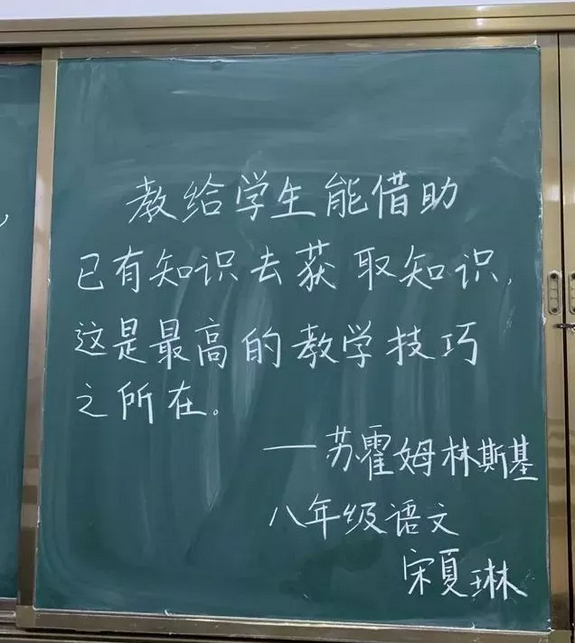 教给学生能借助
已有知识去获取知识,
这是最高的教学技巧
之所在。
—苏霍姆林斯基
八年级语文
宋夏琳